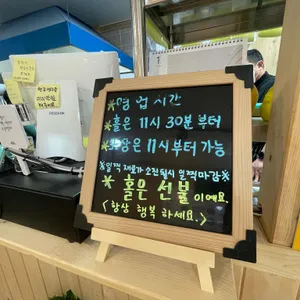 영업시간
*홀은 11시 30분부터
*포장은 11시부터 가능
※일찍 재료가 소진될시 일찍마감※
홀은 선불이예요.
<항상 행복하세요.>